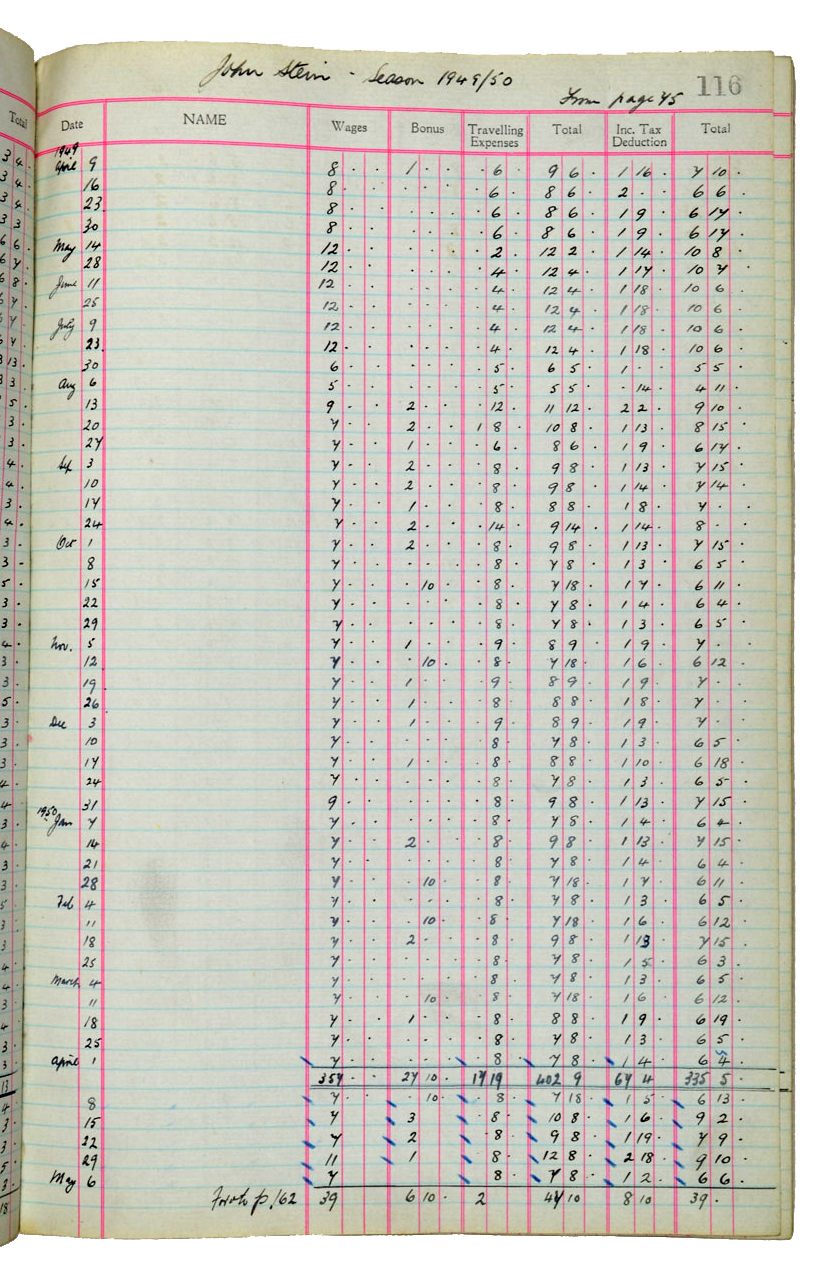 John Stein - Season 1949/50
From page 45 116
Total Date NAME Wages Bonus Travelling Expenses Total Inc. Tax Deduction Total
1949
April 9 8 . . 1 . . . 6 . 9 6 . 1 16 . 7 10 .
16 8 . . . . . . 6 . 8 6 . 2 . . 6 6 .
23 8 . . . . . . 6 . 8 6 . 1 9 . 6 17 .
30 8 . . . . . . 6 . 8 6 . 1 9 . 6 17 .
May 14 12 . . . . . . 2 . 12 2 . 1 14 . 10 8 .
28 12 . . . . . . 4 . 12 4 . 1 17 . 10 7 .
June 11 12 . . . . . . 4 . 12 4 . 1 18 . 10 6 .
25 12 . . . . . . 4 . 12 4 . 1 18 . 10 6 .
July 9 12 . . . . . . 4 . 12 4 . 1 18 . 10 6 .
23 12 . . . . . . 4 . 12 4 . 1 18 . 10 6 .
30 6 . . . . . . 5 . 6 5 . 1 . . 5 5 .
Aug 6 5 . . . . . . 5 . 5 5 . . 14 . 4 11 .
13 9 . . 2 . . . 12 . 11 12 . 2 2 . 9 10 .
20 7 . . 2 . . 1 8 . 10 8 . 1 13 . 8 15 .
27 7 . . 1 . . . 6 . 8 6 . 1 9 . 6 17 .
Sep 3 7 . . 2 . . . 8 . 9 8 . 1 13 . 7 15 .
10 7 . . 2 . . . 8 . 9 8 . 1 14 . 7 14 .
17 7 . . 1 . . . 8 . 8 8 . 1 8 . 7 . .
24 7 . . 2 . . . 14 . 9 14 . 1 14 . 8 . .
Oct 1 7 . . 2 . . . 8 . 9 8 . 1 13 . 7 15 .
8 7 . . . . . . 8 . 7 8 . 1 3 . 6 5 .
15 7 . . . 10 . . 8 . 7 18 . 1 7 . 6 11 .
22 7 . . . . . . 8 . 7 8 . 1 4 . 6 4 .
29 7 . . . . . . 8 . 7 8 . 1 3 . 6 5 .
Nov. 5 7 . . 1 . . . 9 . 8 9 . 1 9 . 7 . .
12 7 . . . 10 . . 8 . 7 18 . 1 6 . 6 12 .
19 7 . . 1 . . . 9 . 8 9 . 1 9 . 7 . .
26 7 . . 1 . . . 8 . 8 8 . 1 8 . 7 . .
Dec 3 7 . . 1 . . . 9 . 8 9 . 1 9 . 7 . .
10 7 . . . . . . 8 . 7 8 . 1 3 . 6 5 .
17 7 . . 1 . . . 8 . 8 8 . 1 10 . 6 18 .
24 7 . . . . . . 8 . 7 8 . 1 3 . 6 5 .
31 9 . . . . . . 8 . 9 8 . 1 13 . 7 15 .
1950
Jan 7 7 . . . . . . 8 . 7 8 . 1 4 . 6 4 .
14 7 . . 2 . . . 8 . 9 8 . 1 13 . 7 15 .
21 7 . . . . . . 8 . 7 8 . 1 4 . 6 4 .
28 7 . . . 10 . . 8 . 7 18 . 1 7 . 6 11 .
Feb 4 7 . . . . . . 8 . 7 8 . 1 3 . 6 5 .
11 7 . . . 10 . . 8 . 7 18 . 1 6 . 6 12 .
18 7 . . 2 . . . 8 . 9 8 . 1 13 . 7 15 .
25 7 . . . . . . 8 . 7 8 . 1 5 . 6 3 .
March 4 7 . . . . . . 8 . 7 8 . 1 3 . 6 5 .
11 7 . . . 10 . . 8 . 7 18 . 1 6 . 6 12 .
18 7 . . 1 . . . 8 . 8 8 . 1 9 . 6 19 .
25 7 . . . . . . 8 . 7 8 . 1 3 . 6 5 .
April 1 7 . . . . . . 8 . 7 8 . 1 4 . 6 4 .
357 27 10 . 17 19 402 9 67 4 335 5 .
8 7 . . . 10 . . 8 . 7 18 . 1 5 . 6 13
15 7 3 . 8 . 10 8 . 1 6 . 9 2 .
22 7 2 . 8 . 9 8 . 1 19 . 7 9 .
29 11 1 8 . 12 8 . 2 18 . 9 10 .
May 6 7 8 . 7 8 . 1 2 . 6 6 .
Forwd p. 162 39 6 10 . 2 47 10 8 10 39 .